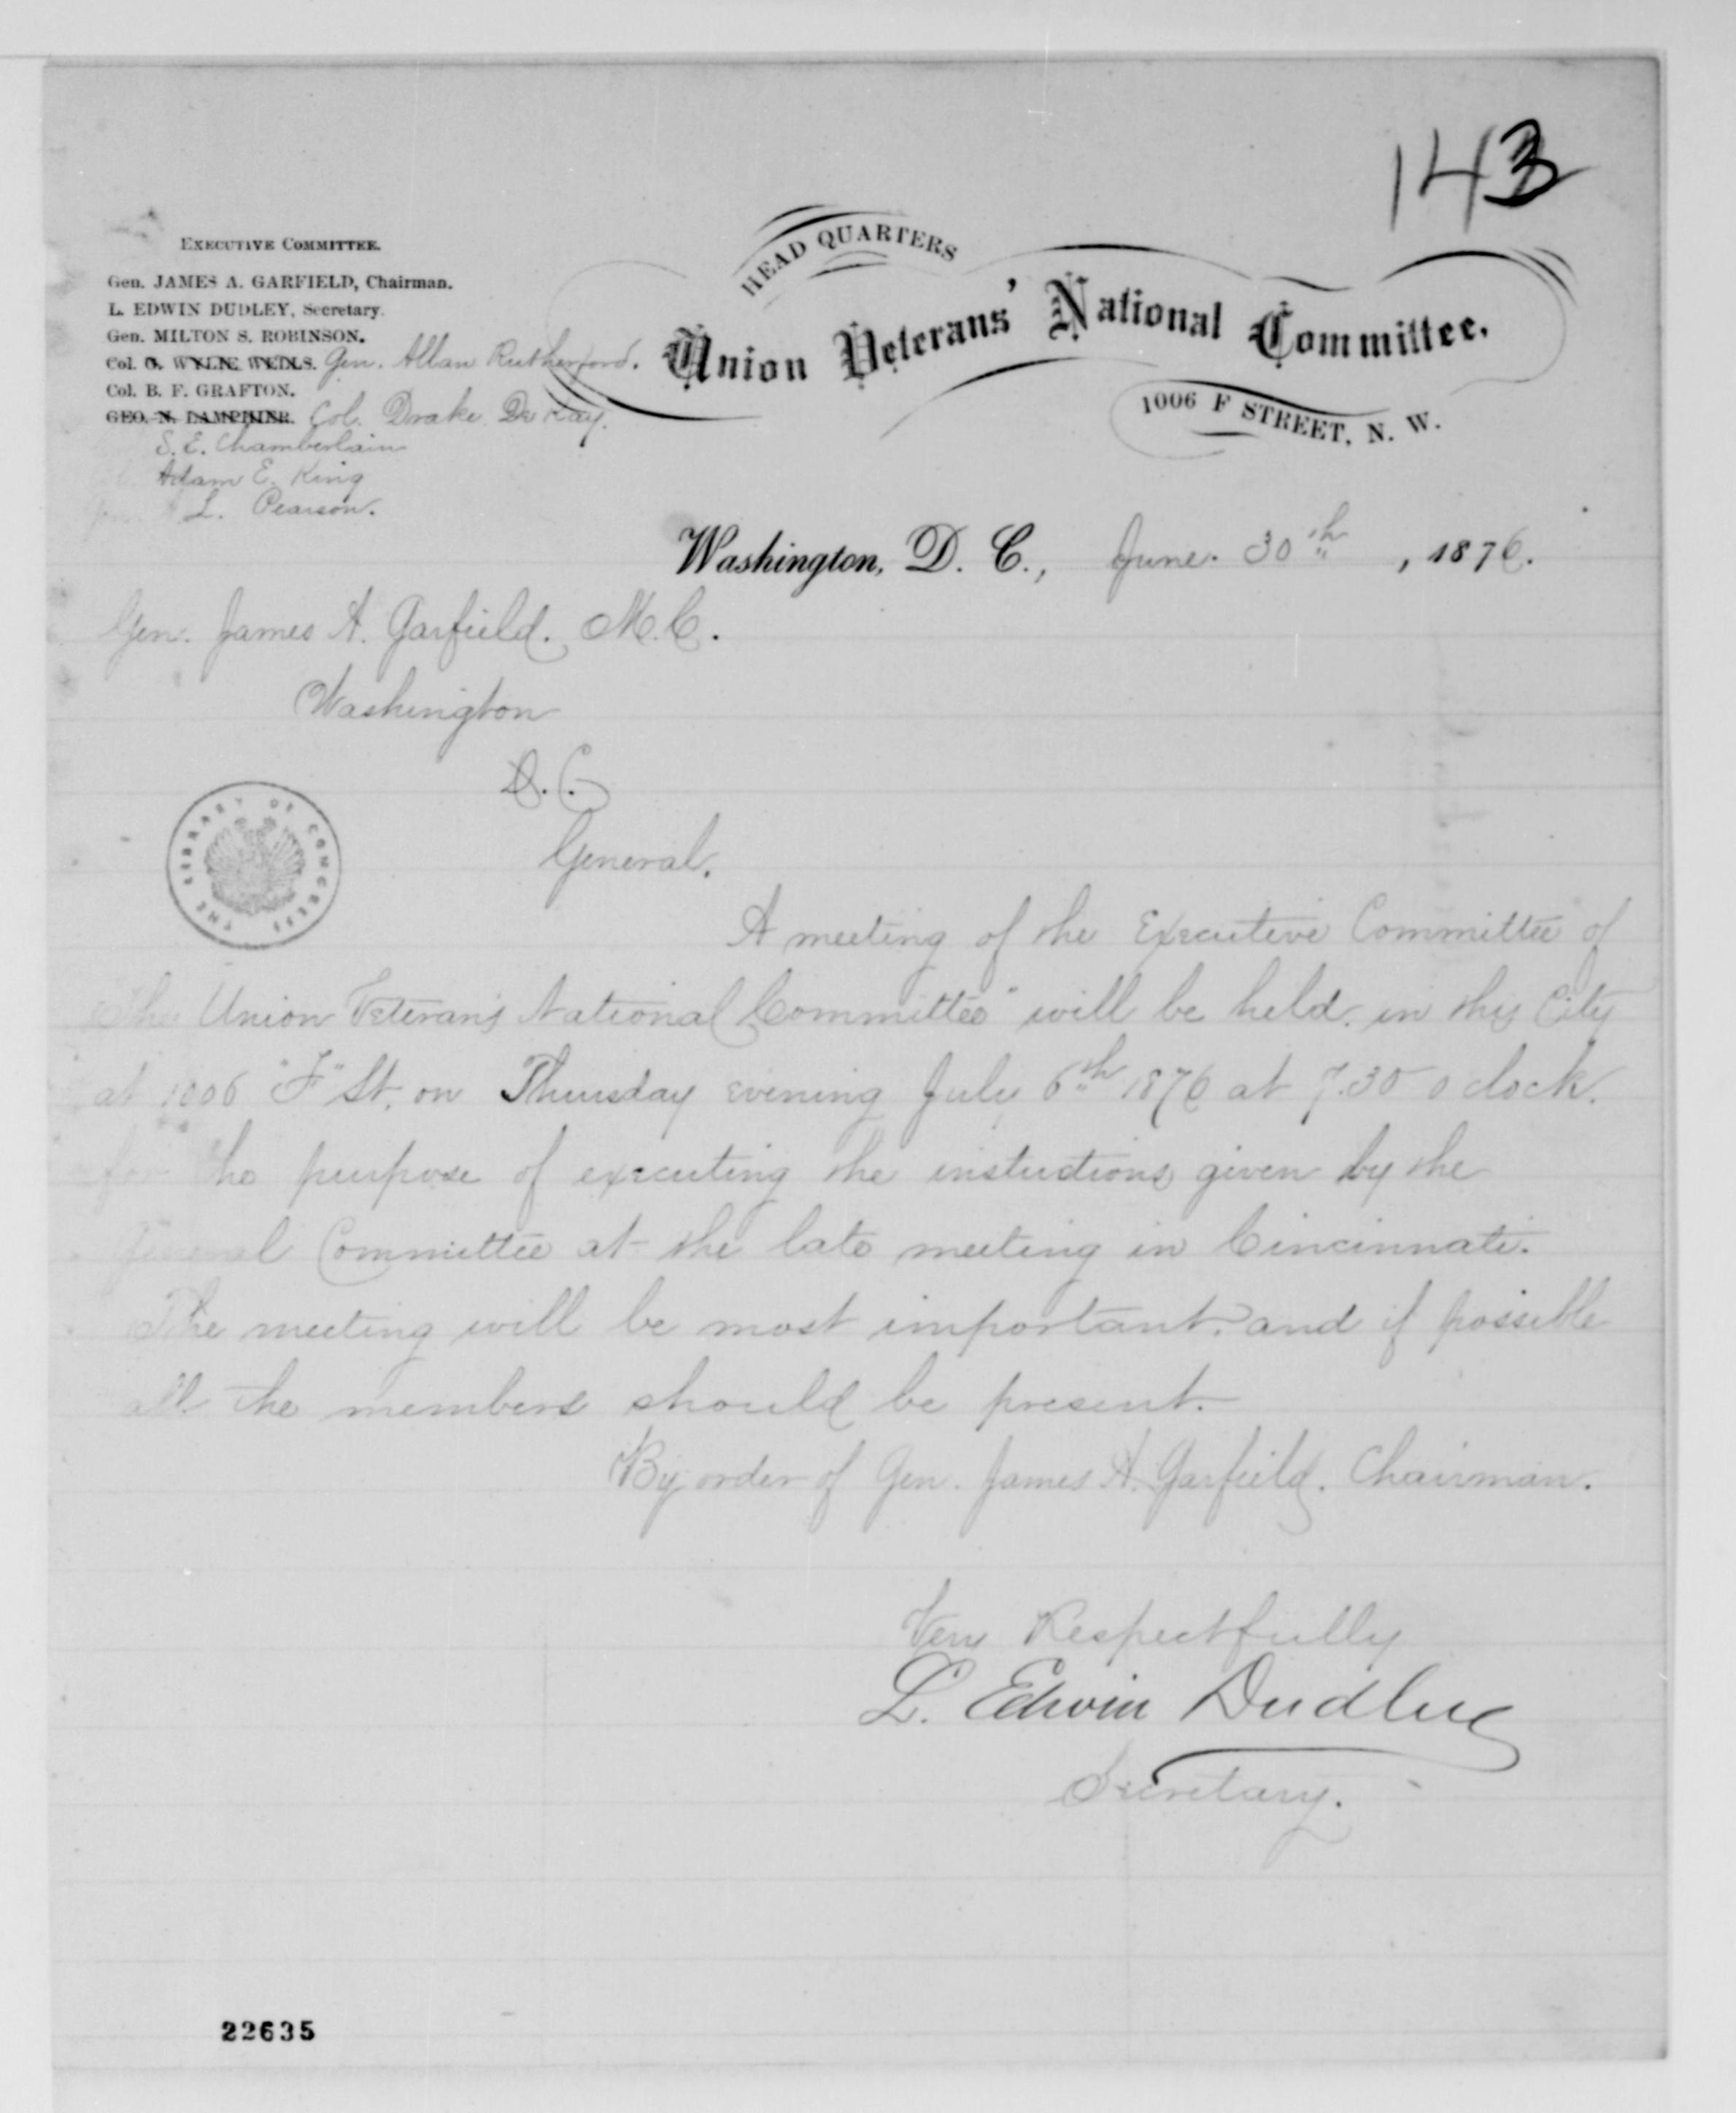 143
EXECUTIVE COMMITTEE.
Gen. JAMES A. GARFIELD, Chairman.
L. EDWIN DUDLEY, Secretary.
Gen. MILTON S. ROBINSON.
Col. G. WYLIE WELLS. Gen. Allan Rutherford.
Col. B. F. GRAFTON.
GEO. N. LAMPHIER. Col. Drake De Kay.
S. E. Chamberlain
Adam E. King
L. Pearson.
HEAD QUARTERS
Union Veterans' National Committee.
1006 F STREET, N. W.
Washington, D. C., June. 30th , 1876.
Gen. James A. Garfield. M.C.
Washington
D.C.
General.
THE LIBRARY OF CONGRESS
A meeting of the Executive Committee of
the Union Veterans National Committee" will be held. in this City
at 1006 "F" St. on Thursday evening July 6th 1876 at 7.30 o clock.
for the purpose of executing the instuctions given by the
General Committee at the late meeting in Cincinnati.
The meeting will be most important. and if possible
all the members should be present.
By order of Gen. James A. Garfield. Chairman.
Very Respectfully
L. Edwin Dudley
Secretary.
22635